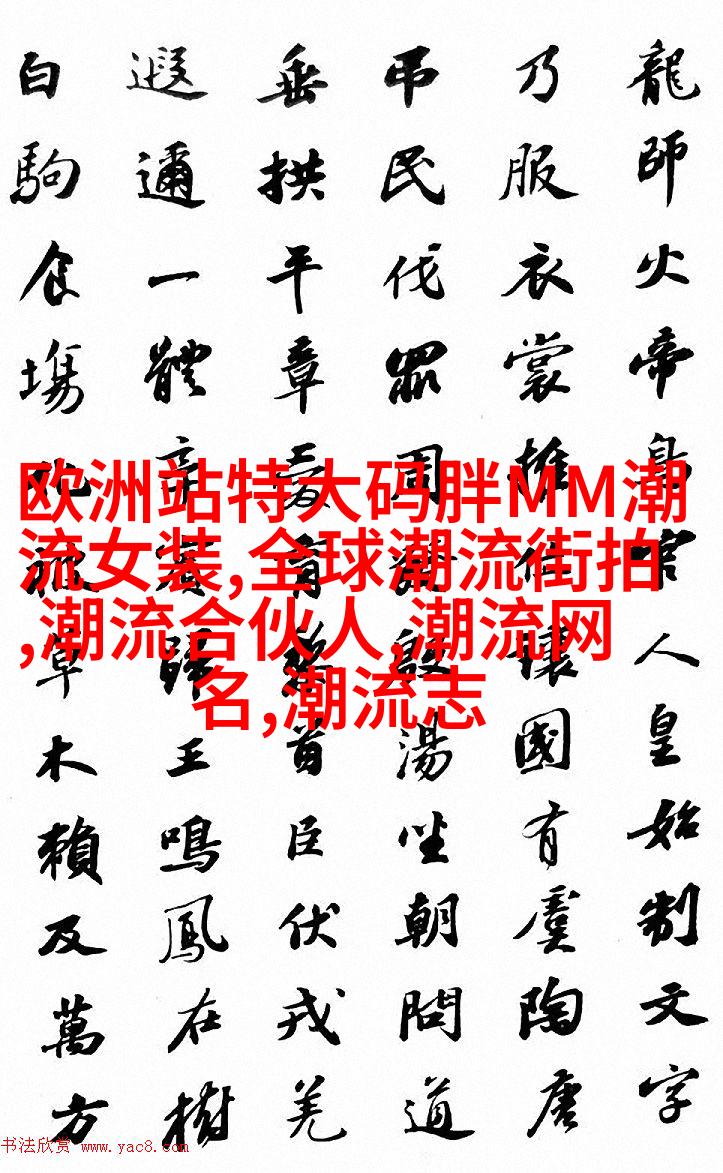 龍師火帝鳥官人皇始制文字
乃服衣裳推位讓國有虞陶唐
弔民伐罪周發殷湯坐朝問道
垂拱平章愛育黎首臣伏戎羌
遐邇一體率賓歸王鳴鳳在樹
白駒食場化被草木賴及萬方
欧洲站特大码胖MM潮
流女装,全球潮流街拍
,潮流合伙人,潮流网
名,潮流志
书法欣赏 www.yac8.com